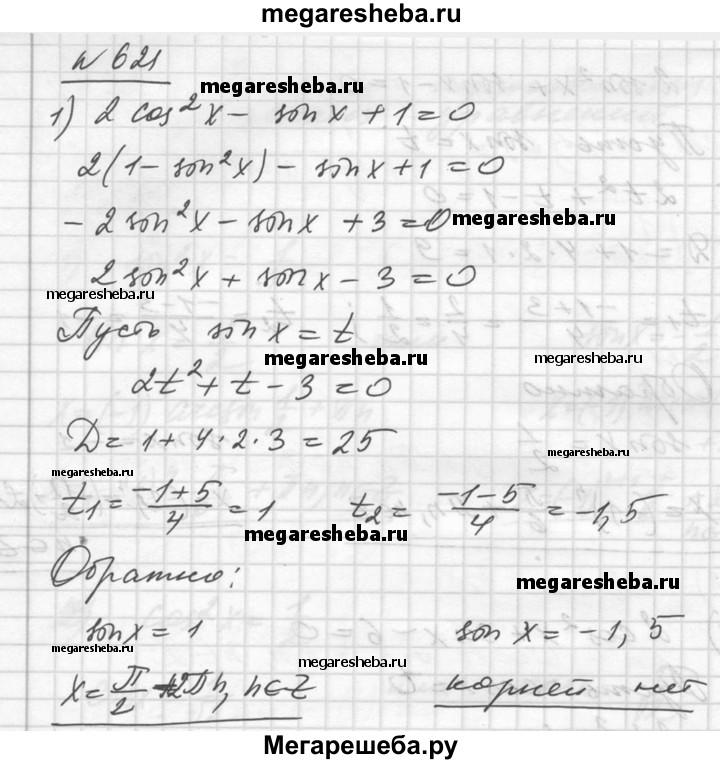 megaresheba.ru
№ 621
megaresheba.ru
1) 2 cos²x - sin x + 1 = 0
2(1 - sin²x) - sin x + 1 = 0
- 2 sin²x - sin x + 3 = 0 megaresheba.ru
2 sin²x + sin x - 3 = 0
megaresheba.ru
Пусть sin x = t
megaresheba.ru megaresheba.ru
2t² + t - 3 = 0
D = 1 + 4·2·3 = 25
megaresheba.ru
megaresheba.ru
t₁ = (-1+5)/4 = 1 t₂ = (-1-5)/4 = -1,5
megaresheba.ru
Обратно:
megaresheba.ru
sin x = 1 sin x = -1,5
megaresheba.ru
megaresheba.ru
x = π/2 + 2πn, n∈Z корней нет
Мегарешеба.ру